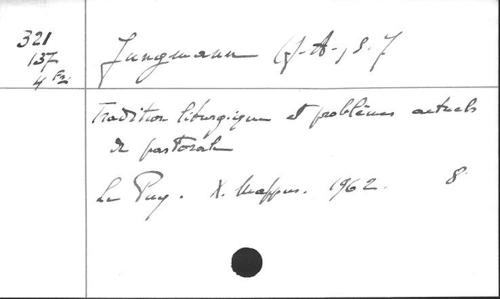 321
137
4 Fr.
Jungmann (J.-A.) S.J
Tradition liturgique et problèmes actuels
de pastorale
Le Puy. X. Mappus. 1962. 8°